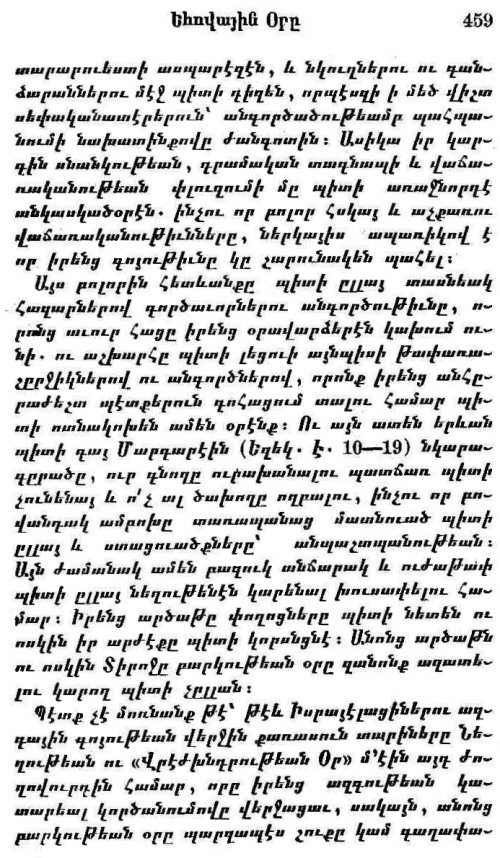 Եհովային Օրը 459
տարարուեստի ասպարէզէն, և նկուղներու ու գան-
ձարաններու մէջ պիտի դիզեն, որպէսզի ի մեծ վիշտ
սեփականատէրերուն՝ անգործածութեամբ պահպա-
նումի նախատինքովը ժանգոտին։ Ասիկա իր կար-
գին սնանկութեան, դրամական տագնապի և վաճա-
ռականութեան փլուզումի մը պիտի առաջնորդէ
անկասկածօրէն. ինչու որ բոլոր հսկայ և աչքառու
վաճառականութիւնները, ներկայիս ապառիկով է
որ իրենց գոյութիւնը կը շարունակեն պահել։
Այս բոլորին հետևանքը պիտի ըլլայ տասնեակ
հազարներով գործաւորներու անգործութիւնը, ո-
րոնց աւուր հացը իրենց օրավարձերէն կախում ու-
նի. ու աշխարհը պիտի լեցուի այնպիսի թափառա-
շըրջիկներով ու անգործներով, որոնք իրենց անհը-
րաժեշտ պէտքերուն գոհացում տալու համար պի-
տի ոտնակոխեն ամեն օրէնք։ Ու այն ատեն երևան
պիտի գայ Մարգարէին (Եզեկ. Է. 10—19) նկարա-
գըրածը, ուր գնողը ուրախանալու պատճառ պիտի
չունենայ և ո՛չ ալ ծախողը ողբալու, ինչու որ բո-
վանդակ ամբոխը տառապանաց մատնուած պիտի
ըլլայ և ստացուածքները՝ անպաշտպանութեան։
Այն ժամանակ ամեն բազուկ անճարակ և ուժաթափ
պիտի ըլլայ նեղութենէն կարենալ խուսափելու հա-
մար։ Իրենց արծաթը փողոցները պիտի նետեն ու
ոսկին իր արժէքը պիտի կորսնցնէ։ Անոնց արծաթն
ու ոսկին Տիրոջը բարկութեան օրը զանոնք ազատե-
լու կարող պիտի չըլլան։
Պէտք չէ մոռնանք թէ՝ թէև Իսրայէլացիներու ազ-
գային գոյութեան վերջին քառասուն տարիները Նե-
ղութեան ու «Վրէժխնդրութեան Օր» մ՚էին այդ ժո-
ղովուրդին համար, որը իրենց ազգութեան կա-
տարեալ կործանումովը վերջացաւ, սակայն, անոնց
բարկութեան օրը պարզապէս շուքը կամ գաղափա-